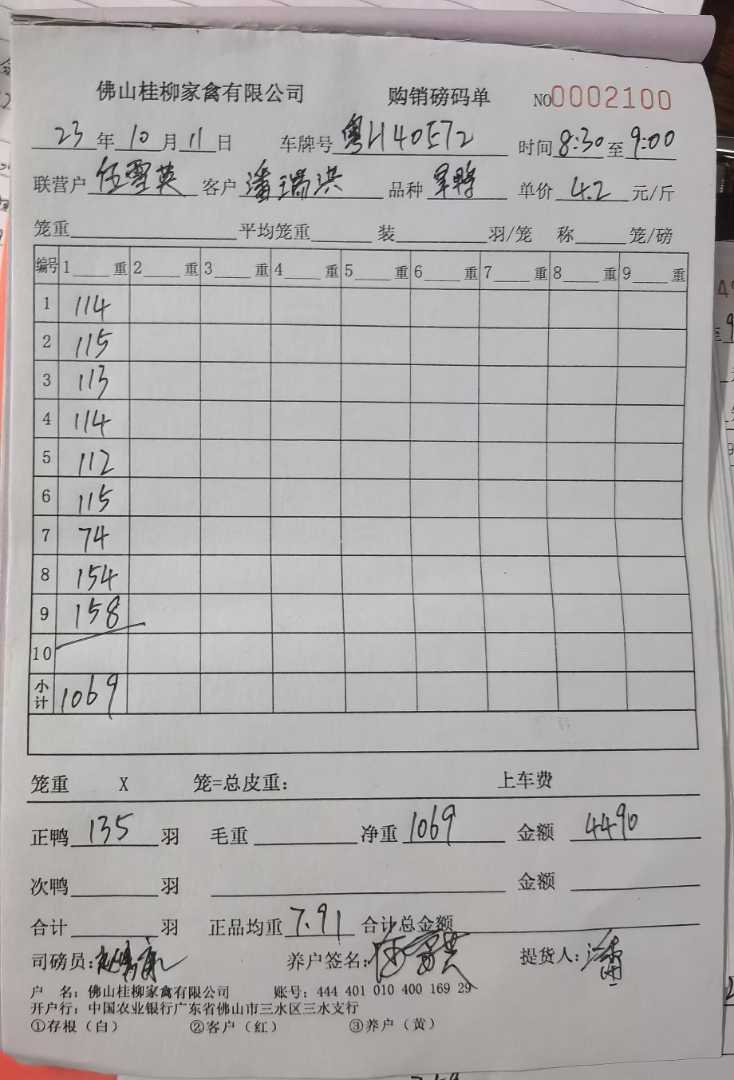 佛山桂柳家禽有限公司 购销磅码单 NO0002100
23年10月11日 车牌号粤H40E72 时间8:30至9:00
联营户伍雪英 客户潘瑞洪 品种 单价4.2元/斤
笼重 平均笼重 装 羽/笼 称 笼/磅
编号 1 重 2 重 3 重 4 重 5 重 6 重 7 重 8 重 9 重
1 114
2 115
3 113
4 114
5 112
6 115
7 74
8 154
9 158
10
小计 1069
笼重 X 笼=总皮重: 上车费
正鸭135羽 毛重 净重1069 金额4490
次鸭 羽 金额
合计 羽 正品均重7.91 合计总金额
司磅员: 养户签名: 提货人:潘
户 名: 佛山桂柳家禽有限公司 账号: 444 401 010 400 169 29
开户行: 中国农业银行广东省佛山市三水区三水支行
①存根（白） ②客户（红） ③养户（黄）